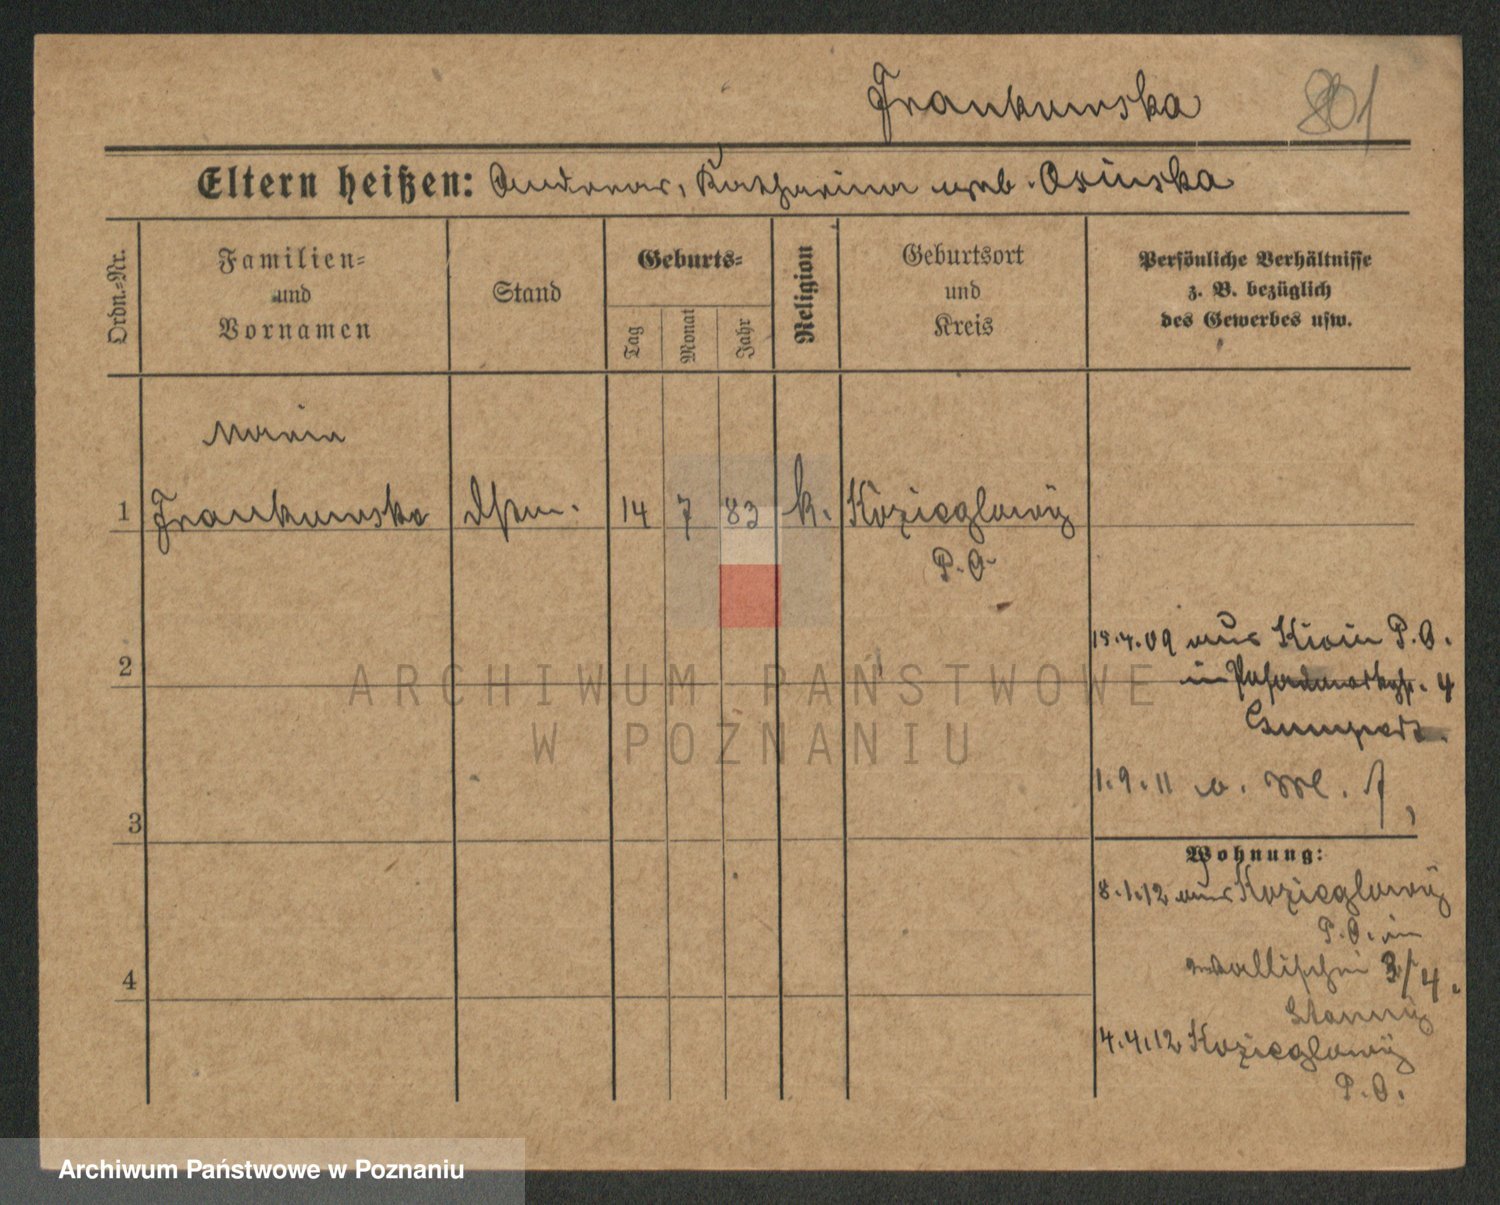 Frankowska 801
Eltern heißen: Andreas, Katharina geb. Osinska
Ordn.=Nr.
Familien=
und
Vornamen
Stand
Geburts=
Tag
Monat
Jahr
Religion
Geburtsort
und
Kreis
Persönliche Verhältnisse
z. B. bezüglich
des Gewerbes usw.
Maria
1 Frankowska 14 7 83 k. Kozieglowy
P. O.
2
15.4.09 aus Kicin P. O.
in 4
Gumpert.
1.9.11 v. Ml.
3
Wohnung:
8.1.12 aus Kozieglowy
P. O. in
Wallischei 3/4.
4
4.4.12 Kozieglowy
P. O.
ARCHIWUM PAŃSTWOWE
W POZNANIU
Archiwum Państwowe w Poznaniu